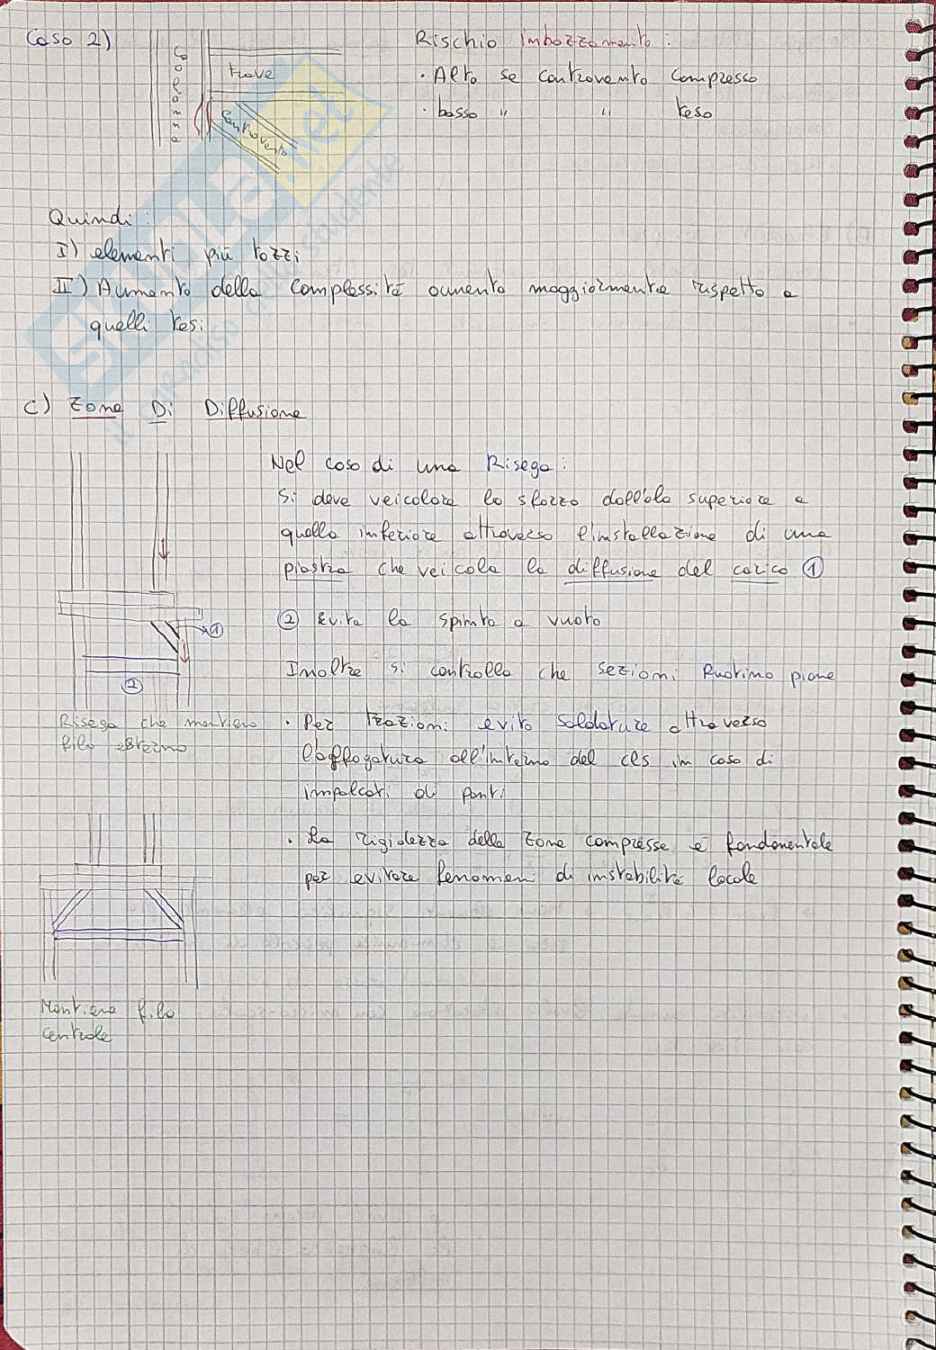 Caso 2)
Colonna
trave
Controvento
Rischio Imbozzamento:
· Alto se controvento compresso
· basso " " teso
Quindi:
I) elementi più tozzi
II) Aumento della complessità aumenta maggiormente rispetto a
quelli tesi
C) Zone Di Diffusione
Nel caso di una Risega:
Si deve veicolare lo sforzo dall'ala superiore a
quella inferiore attraverso l'installazione di una
piastra che veicola la diffusione del carico ①
② Evita la spinta a vuoto
Inoltre si controlla che sezioni Ruotino piane
①
②
Risega che mantiene
filo esterno
· Per trazioni evito saldature attraverso
l'affogatura all'interno del cls in caso di
impalcati di ponti
· La rigidezza delle zone compresse è fondamentale
per evitare fenomeni di instabilità locale
Mantiene filo
centrale
SKUOLA.net
il paradiso dello studente